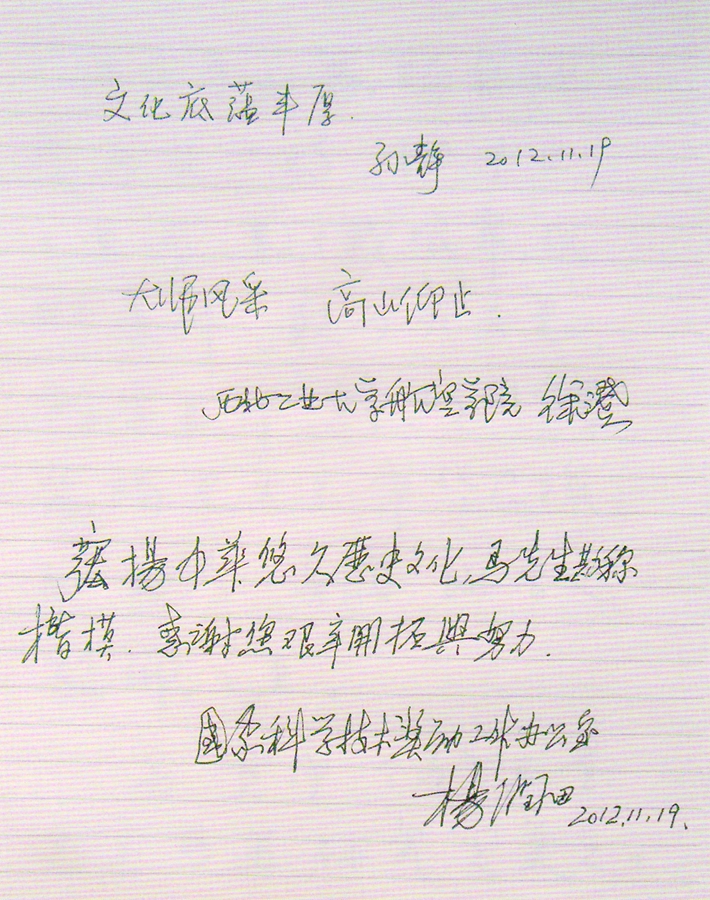 文化底蕴丰厚.
孙静 2012.11.19
大师风采 高山仰止.
西北工业大学航空学院 徐澄
弘揚中華悠久歷史文化,馬先生堪称
楷模.感謝您艰辛開拓與努力.
國家科学技术奖励工作办公室
楊 2012.11.19.